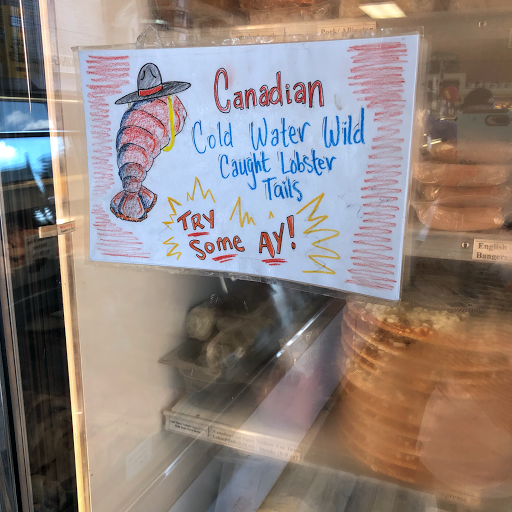 Canadian
Cold Water Wild
Caught Lobster
Tails
TRY
Some AY!
English
Bangers